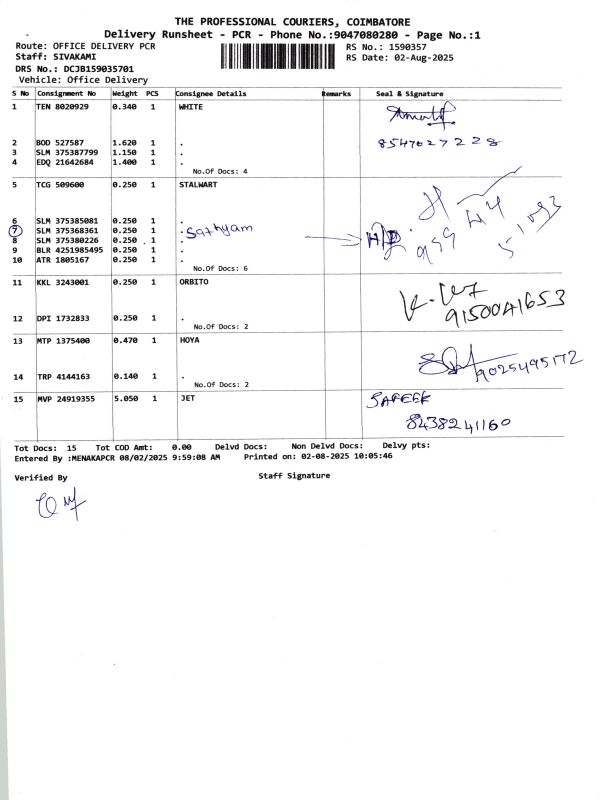 THE PROFESSIONAL COURIERS, COIMBATORE
Delivery Runsheet - PCR - Phone No.:9047080280 - Page No.:1
Route: OFFICE DELIVERY PCR RS No.: 1590357
Staff: SIVAKAMI RS Date: 02-Aug-2025
DRS No.: DCJB159035701
Vehicle: Office Delivery
S No Consignment No Weight PCS Consignee Details Remarks Seal & Signature
1 TEN 8020929 0.340 1 WHITE
2 BOD 527587 1.620 1 . 8547027228
3 SLM 375387799 1.150 1 .
4 EDQ 21642684 1.400 1 .
No.Of Docs: 4
5 TCG 509600 0.250 1 STALWART
6 SLM 375385081 0.250 1 .
7 SLM 375368361 0.250 1 . Sathyam
8 SLM 375380226 0.250 1 .
9 BLR 4251985495 0.250 1 .
10 ATR 1805167 0.250 1 .
No.Of Docs: 6
11 KKL 3243001 0.250 1 ORBITO
9150041653
12 DPI 1732833 0.250 1 .
No.Of Docs: 2
13 MTP 1375400 0.470 1 HOYA
9025495172
14 TRP 4144163 0.140 1 .
No.Of Docs: 2
15 MVP 24919355 5.050 1 JET SAFEEK
8438241160
Tot Docs: 15 Tot COD Amt: 0.00 Delvd Docs: Non Delvd Docs: Delvy pts:
Entered By :MENAKAPCR 08/02/2025 9:59:08 AM Printed on: 02-08-2025 10:05:46
Verified By Staff Signature